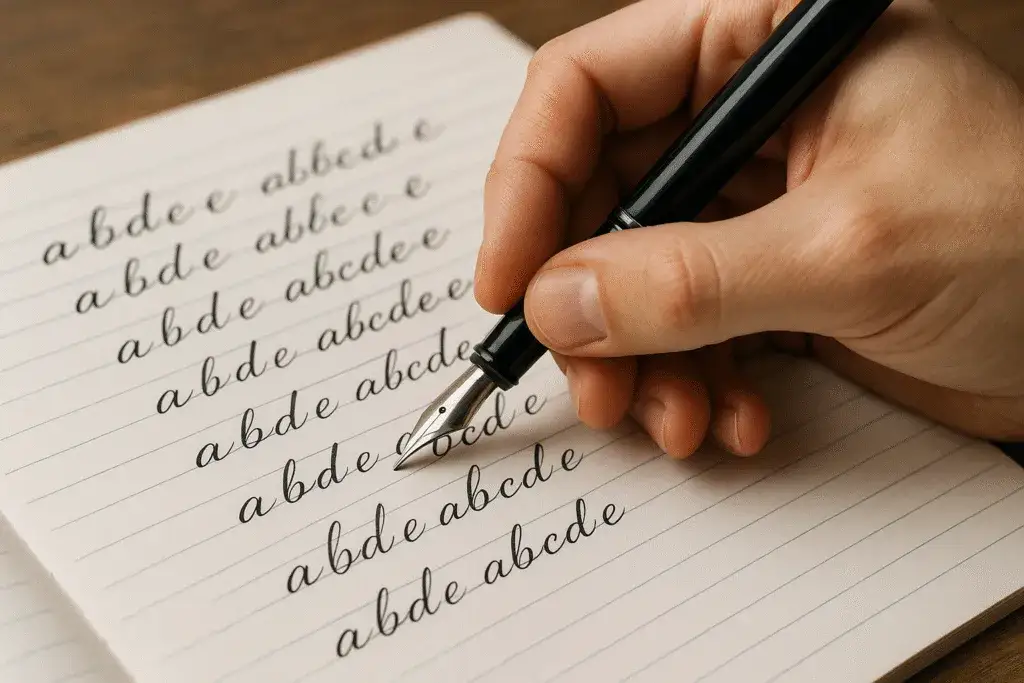 a b d e e abbcd e
a b d e abbc c e
a b d e abcde e
a b d e abcde e
a b d e abcde
a b d e cd e
a b d e abcde
a b d e abcde